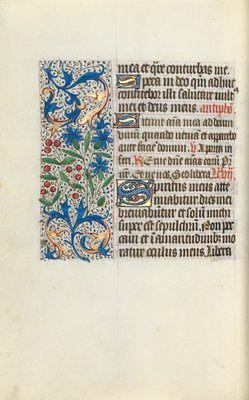 mea et quare conturbas me.
Spera in deo qm adhuc
confitebor illi salutare vult⁹
mei et deus meus. antiphō.
Sitiuit aīa mea ad deum
viuum quando veniā et apparebo
ante faciē domini. ℣. A porta in
feri ℟. Erue dn̄e aīas eorū. P̄r
nr̄. Et ne nos. Sed libera. Lc̄o vij.
Spiritus meus atte
nuabitur dies mei
breuiabūtur et solū michi
superest sepulchrū. Non pec
caui et ī amaritudinibꝰ mo
ratur oculus meus. Libera